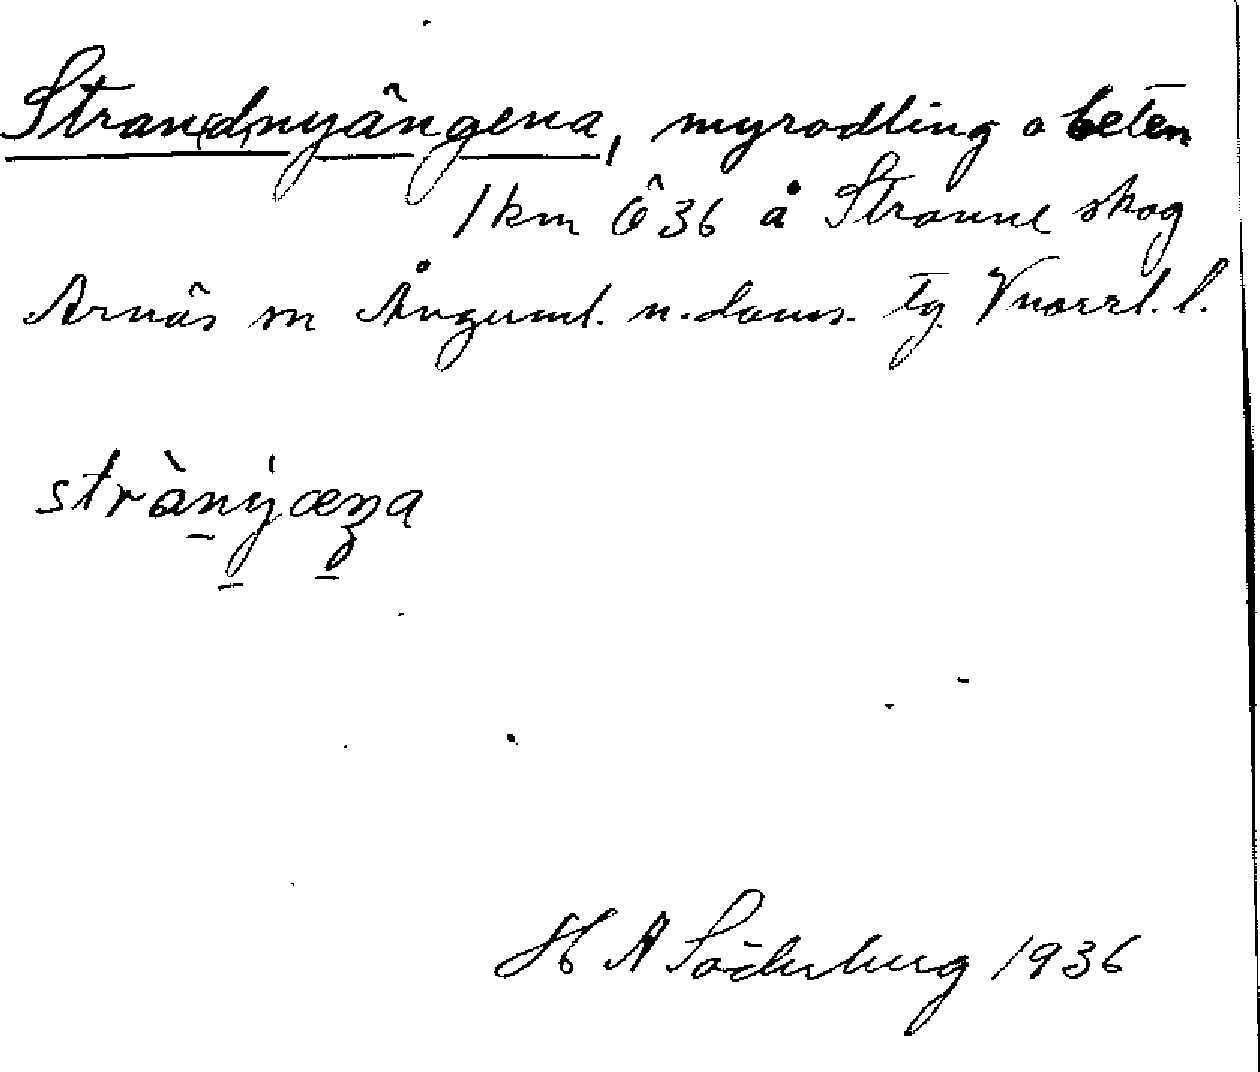 Stran(d)nyängena, myrodling o beten
1 km Ö 36 å Stranne skog
Arnäs sn Ångerml. n. doms. tg Vnorrl. l.
strànýæŋa
H A Söderberg 1936